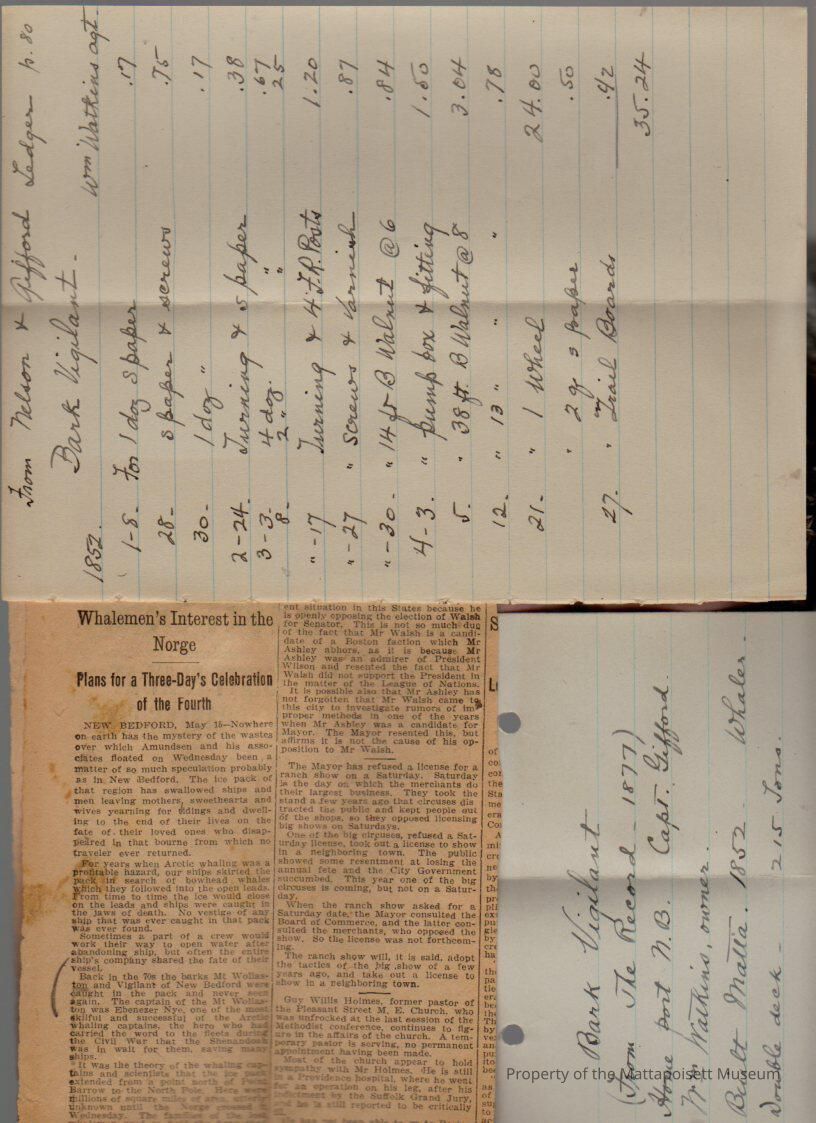 From Nelson & Gifford Ledger p. 80
Bark Vigilant -
1852. Wm Watkins agt.
1-8- For 1 doz S paper .17
28- S paper & screws .75
30- 1 doz " .17
2-24- Turning & S paper .38
3-3- 4 doz. " .67
8- 2 " " 25
"-17 Turning & 4 T.R. Posts 1.20
"-27 " Screws & Varnish .87
"-30- " 14 ft B Walnut @6 .84
4-3. " Pump box & fitting 1.50
5. " 38 ft. B Walnut @8 3.04
12- " 13 " " " .78
21- " 1 Wheel 24.00
" 2 qr S paper .50
27. " Trail Boards .42
35.24
Whalemen's Interest in the
Norge
Plans for a Three-Day's Celebration
of the Fourth
NEW BEDFORD, May 15—Nowhere
on earth has the mystery of the wastes
over which Amundsen and his asso-
ciates floated on Wednesday been a
matter of so much speculation probably
as in New Bedford. The ice pack of
that region has swallowed ships and
men leaving mothers, sweethearts and
wives yearning for tidings and dwell-
ing to the end of their lives on the
fate of their loved ones who disap-
peared in that bourne from which no
traveler ever returned.
For years when Arctic whaling was a
profitable hazard, our ships skirted the
pack in search of bowhead whales
which they followed into the open leads.
From time to time the ice would close
on the leads and ships were caught in
the jaws of death. No vestige of any
ship that was ever caught in that pack
was ever found.
Sometimes a part of a crew would
work their way to open water after
abandoning ship, but often the entire
ship's company shared the fate of their
vessel.
Back in the 70s the barks Mt Wollas-
ton and Vigilant of New Bedford were
caught in the pack and never seen
again. The captain of the Mt Wollas-
ton was Ebenezer Nye, one of the most
skilful and successful of the Arctic
whaling captains, the hero who had
carried the word to the fleets during
the Civil War that the Shenandoah
was in wait for them, saving many
ships.
It was the theory of the whaling cap-
tains and scientists that the ice pack
extended from a point north of Point
Barrow to the North Pole. Here were
millions of square miles of area, utterly
unknown until the Norge crossed it
Wednesday. The families of the lost
ent situation in this States because he
is openly opposing the election of Walsh
for Senator. This is not so much due
of the fact that Mr Walsh is a candi-
date of a Boston faction which Mr
Ashley abhors, as it is because Mr
Ashley was an admirer of President
Wilson and resented the fact that Mr
Walsh did not support the President in
the matter of the League of Nations.
It is possible also that Mr Ashley has
not forgotten that Mr Walsh came to
this city to investigate rumors of im-
proper methods in one of the years
when Mr Ashley was a candidate for
Mayor. The Mayor resented this, but
affirms it is not the cause of his op-
position to Mr Walsh.
The Mayor has refused a license for a
ranch show on a Saturday. Saturday
is the day on which the merchants do
their largest business. They took the
stand a few years ago that circuses dis
tracted the public and kept people out
of the shops, so they opposed licensing
big shows on Saturdays.
One of the big circuses, refused a Sat-
urday license, took out a license to show
in a neighboring town. The public
showed some resentment at losing the
annual fete and the City Government
succumbed. This year one of the big
circuses is coming, but not on a Satur-
day.
When the ranch show asked for a
Saturday date, the Mayor consulted the
Board of Commerce, and the latter con-
sulted the merchants, who opposed the
show. So the license was not forthcom-
ing.
The ranch show will, it is said, adopt
the tactics of the big show of a few
years ago, and take out a license to
show in a neighboring town.
Guy Willis Holmes, former pastor of
the Pleasant Street M. E. Church, who
was unfrocked at the last session of the
Methodist conference, continues to fig-
ure in the affairs of the church. A tem-
porary pastor is serving, no permanent
appointment having been made.
Most of the church appear to hold
sympathy with Mr Holmes. He is still
in a Providence hospital, where he went
for an operation on his leg, after his
indictment by the Suffolk Grand Jury,
and he is still reported to be critically
ill.
Bark Vigilant
(From The Record - 1877)
Home port N.B. Capt. Gifford.
Wm Watkins, owner.
Built Matta. 1852 Whaler-
Double deck - 215 Tons.
Property of the Mattapoisett Museum